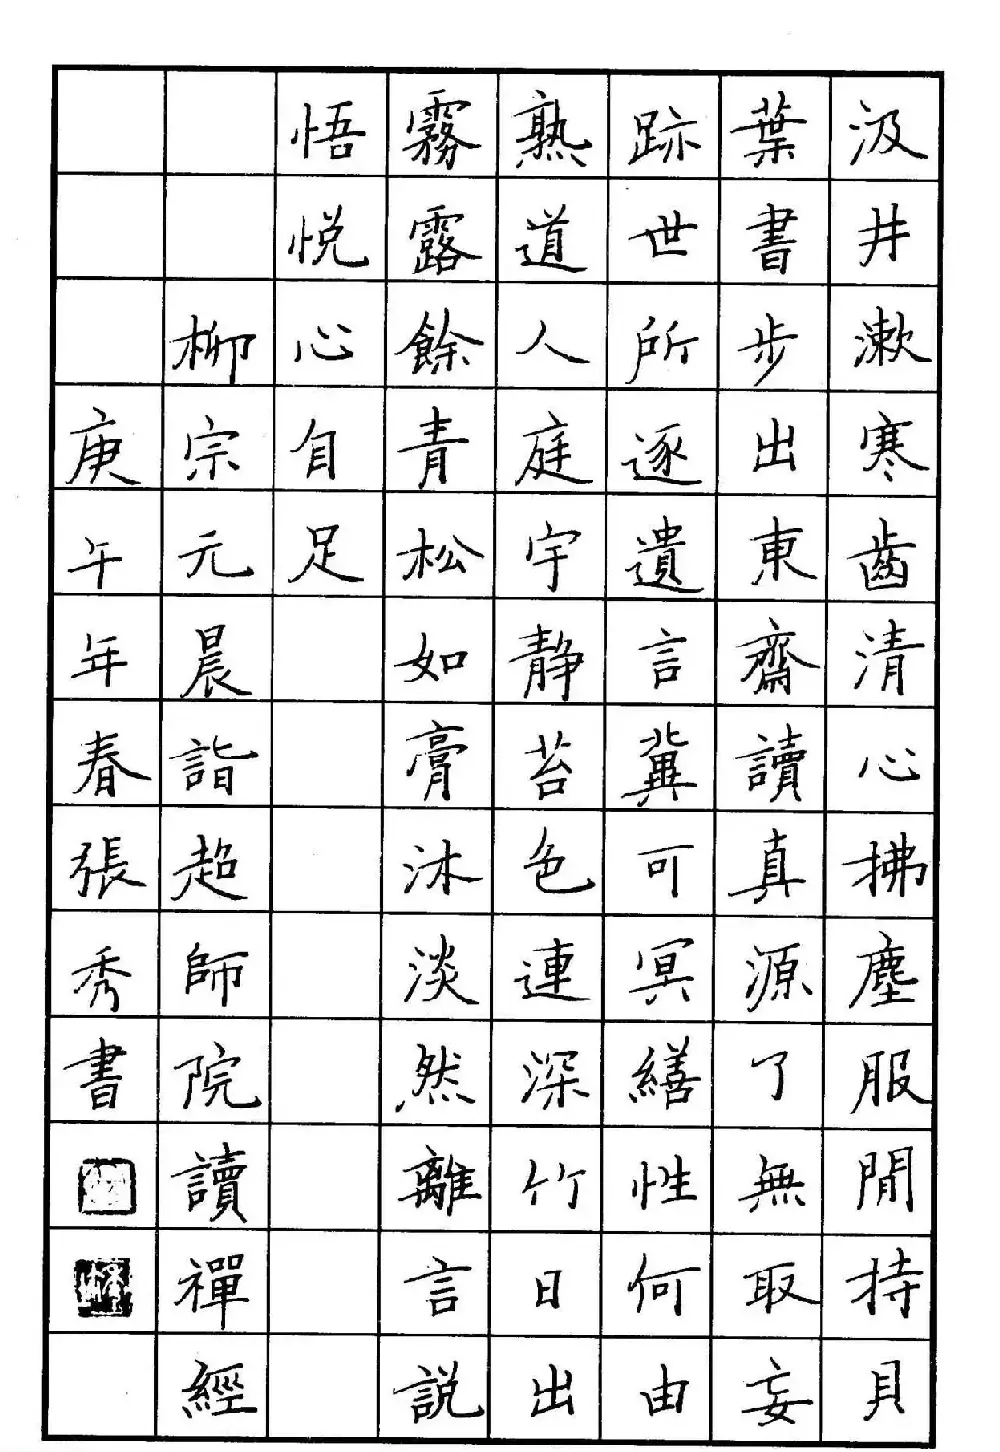 汲井漱寒齒清心拂塵服閒持貝
葉書步出東齋讀真源了無取妄
跡世所逐遺言冀可冥繕性何由
熟道人庭宇靜苔色連深竹日出
霧露餘青松如膏沐淡然離言說
悟悅心自足
柳宗元晨詣超師院讀禪經
庚午年春張秀書